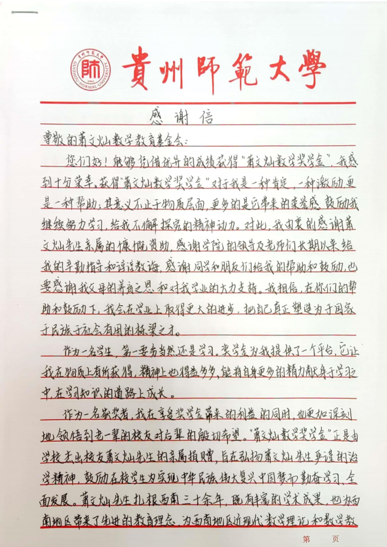 貴州師範大學
感谢信
尊敬的萧文灿数学教育基金会:
您们好!能够凭借优异的成绩获得“萧文灿数学奖学金”,我感
到十分荣幸。获得“萧文灿数学奖学金”对于我是一种肯定,一种激励更
是一种帮助,其意义不止于物质层面,更多的是它带来的荣誉感,鼓励我
继续努力学习,给我不懈探究的精神动力。对此,我由衷的感谢萧
文灿先生亲属的慷慨资助,感谢学院的领导及老师们长期以来给
我的辛勤指导和谆谆教诲,感谢同学和朋友们给我的帮助和鼓励,也
要感谢我父母的养育之恩和对我学业的大力支持。我相信,在你们的帮
助和鼓励下,我会在学业上取得更大的进步,把自己真正塑造为于国家
于民族于社会有用的栋梁之才。
作为一名学生,第一要务当然还是学习。奖学金为我提供了一个平台,它让
我在物质上有所获得,精神上也得益多多,能有更多的精力献身于学习之
中,在学习知识的道路上成长。
作为一名获奖者,我在享受奖学金带来的利益的同时,也更加深刻
地领悟到老一辈的校友对后辈的殷切希望。“萧文灿数学奖学金”正是由
学校杰出校友萧文灿先生的亲属捐赠,旨在弘扬萧文灿先生严谨的治
学精神,鼓励在校学生为实现中华民族伟大复兴中国梦而勤奋学习,全
面发展。萧文灿先生扎根西南三十余年,既有丰富的学术成果,也为西
南地区带来了先进的教育理念,为西南地区近现代数学理论和数学教
第 页